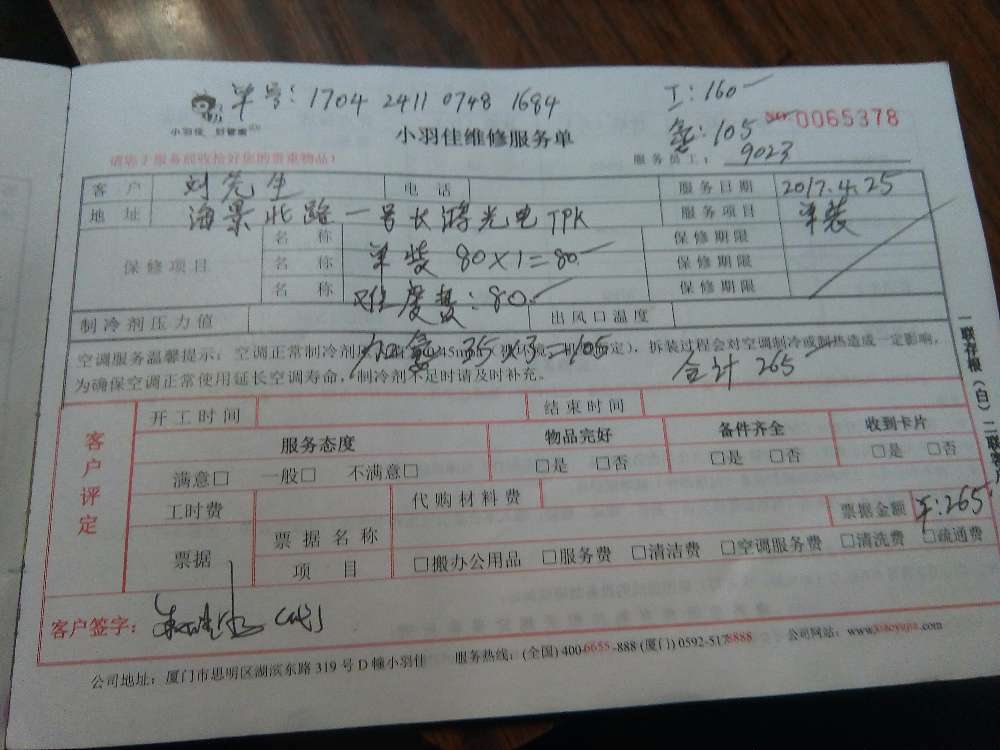 单号: 1704 2411 0748 1684
工: 160
小羽佳
管: 105
0065378
小羽佳维修服务单
请您于服务前收拾好您的贵重物品!
服务员工: 9023
客户 刘先生 电话 服务日期 2017.4.25
地址 海景北路一号长鸿光电TPK 服务项目 单装
保修项目 名称 保修期限
名称 单装 80×1=80 保修期限
名称 难度费: 80 保修期限
制冷剂压力值 出风口温度
加管 35×3=105
空调服务温馨提示: 空调正常制冷剂 定), 拆装过程会对空调制冷或制热造成一定影响,
为确保空调正常使用延长空调寿命, 制冷剂不足时请及时补充。
合计 265
一联存根(白) 二联
客户评定
开工时间 结束时间
服务态度 物品完好 备件齐全 收到卡片
满意□ 一般□ 不满意□ □是 □否 □是 □否 □是 □否
工时费 代购材料费
票据 票据名称 票据金额 ¥:265
项目 □搬办公用品 □服务费 □清洁费 □空调服务费 □清洗费 □疏通费
客户签字: (代)
公司地址: 厦门市思明区湖滨东路 319 号 D 幢小羽佳 服务热线: (全国) 400-6655-888 (厦门) 0592-5178888 公司网站: www.xiaoyujia.com